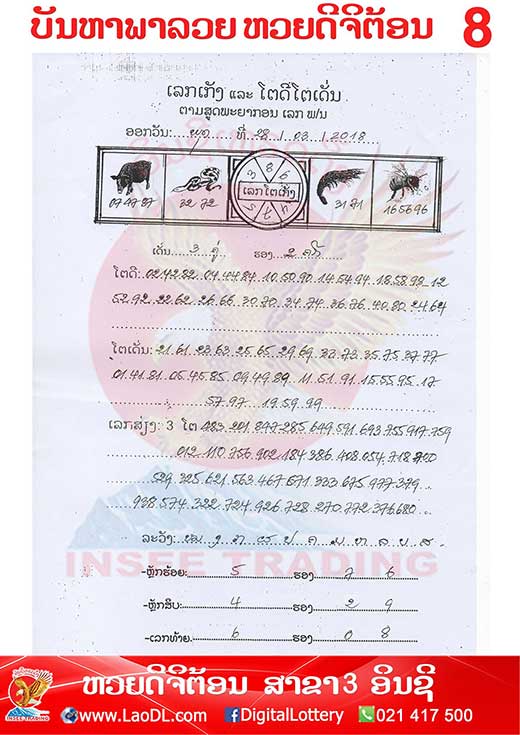 ບັນຫາພາລວຍ ຫວຍດີຈີຕ້ອນ 8
ເລກເກັງ ແລະ ໂຕດີໂຕເດັ່ນ
ຕາມສູດພະຍາກອນ ເລກ ພ/ນ
ອອກວັນ: ພຸດ ທີ່ 28 / 03 / 2018
ເລກໂຕເກັງ
07 47 87 32 72 31 71 16 56 96
ເດັ່ນ 3 ຄູ່ ຮອງ 2
ໂຕດີ: 02 42 82 04 44 84 10 50 90 14 54 94 18 58 98 12
52 92 22 62 26 66 30 70 34 74 36 76 40 80 24 64
ໂຕເດັ່ນ: 21 61 23 63 25 65 29 69 33 73 35 75 37 77
01 41 81 05 45 85 09 49 89 11 51 91 15 55 95 17
57 97 19 59 99
ເລກສ່ຽງ: 3 ໂຕ 083 201 847 285 649 591 693 755 917 759
012 110 756 902 184 386 408 054 718 700
529 325 621 563 467 671 333 675 977 379
938 574 322 724 926 728 270 772 376 680
ລະວັງ:
INSEE TRADING
-ຫຼັກຮ້ອຍ: 5 ຮອງ 7 6
-ຫຼັກສິບ: 4 ຮອງ 2 9
-ເລກທ້າຍ: 6 ຮອງ 0 8
ຫວຍດີຈີຕ້ອນ ສາຂາ 3 ອິນຊີ
INSEE TRADING
www.LaoDL.com DigitalLottery 021 417 500